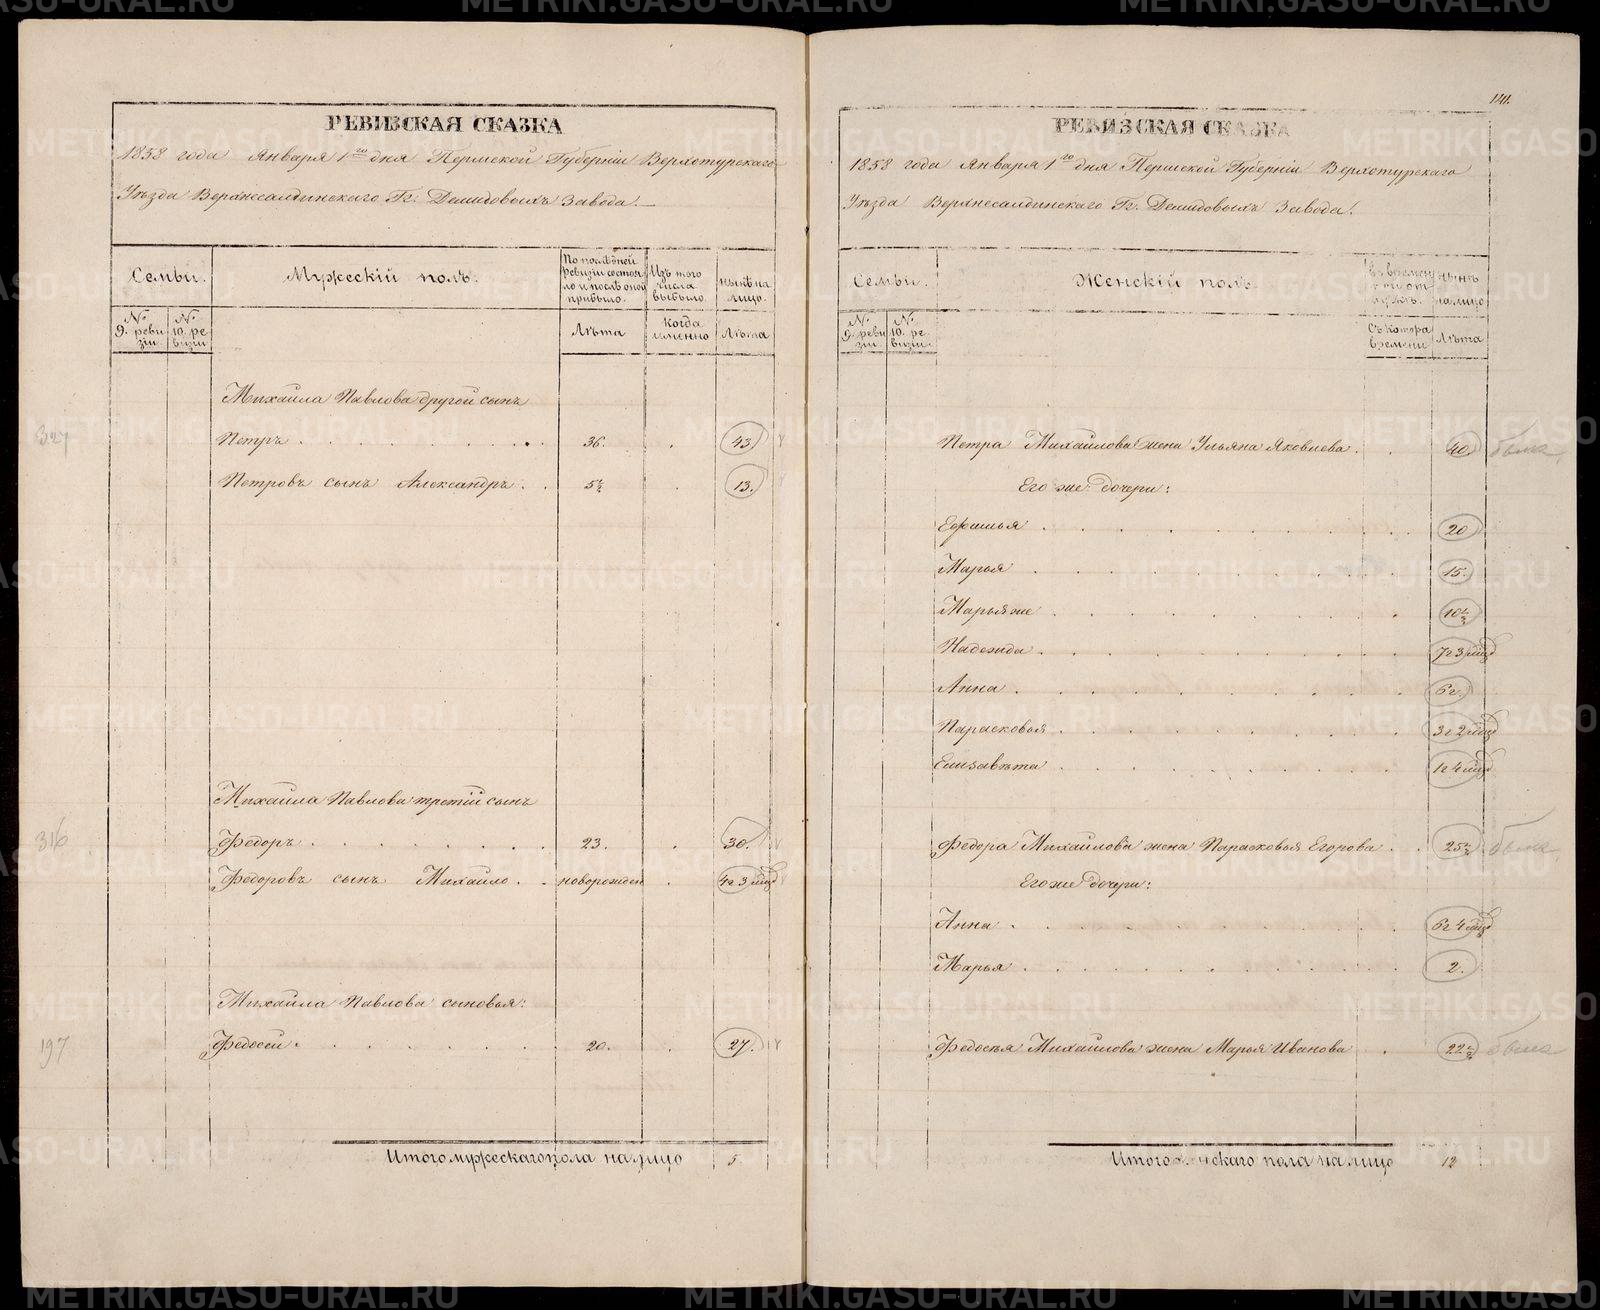 РЕВИЗСКАЯ СКАЗКА
1858 года Января 1го дня Пермской Губерніи Верхотурскаго
Уѣзда Верхнесалдинскаго Гг. Демидовыхъ Завода.
Семьи.
Мужескій полъ.
По послѣдней ревизіи состояло и послѣ оной прибыло.
Изъ того числа выбыло.
нынѣ на лицо.
№ 9. ревизіи.
№ 10. ревизіи.
Лѣта
Когда именно
Лѣта
Михаила Павлова другой сынъ
327
Петръ 36. 43.
Петровъ сынъ Александръ 5½ 13.
Михаила Павлова третій сынъ
316
Федоръ 23. 30.
Федоровъ сынъ Михайло новорожден 4г 3 мцд
Михаила Павлова сыновья:
197
Федосей 20. 27.
Итого мужескаго пола на лицо 5
141.
РЕВИЗСКАЯ СКАЗКА
1858 года Января 1го дня Пермской Губерніи Верхотурскаго
Уѣзда Верхнесалдинскаго Гг. Демидовыхъ Завода.
Семьи.
Женскій полъ.
нынѣ на лицо
№ 9. ревизіи.
№ 10. ревизіи.
Съ котора времени
Лѣта
Петра Михайлова жена Ульяна Яковлева 40.
Его же дочери:
Ефимья 20
Марья 15.
Марья же 10½
Надежда 7г 3 мцд
Анна 6г.
Парасковья 3г 2 мцд
Елизавѣта 1г 4 мцд
Федора Михайлова жена Парасковья Егорова 25½
Его же дочери:
Анна 6г 4 мцд
Марья 2.
Федосѣя Михайлова жена Марья Иванова 22½
Итого женскаго пола на лицо 12
METRIKI.GASO-URAL.RU